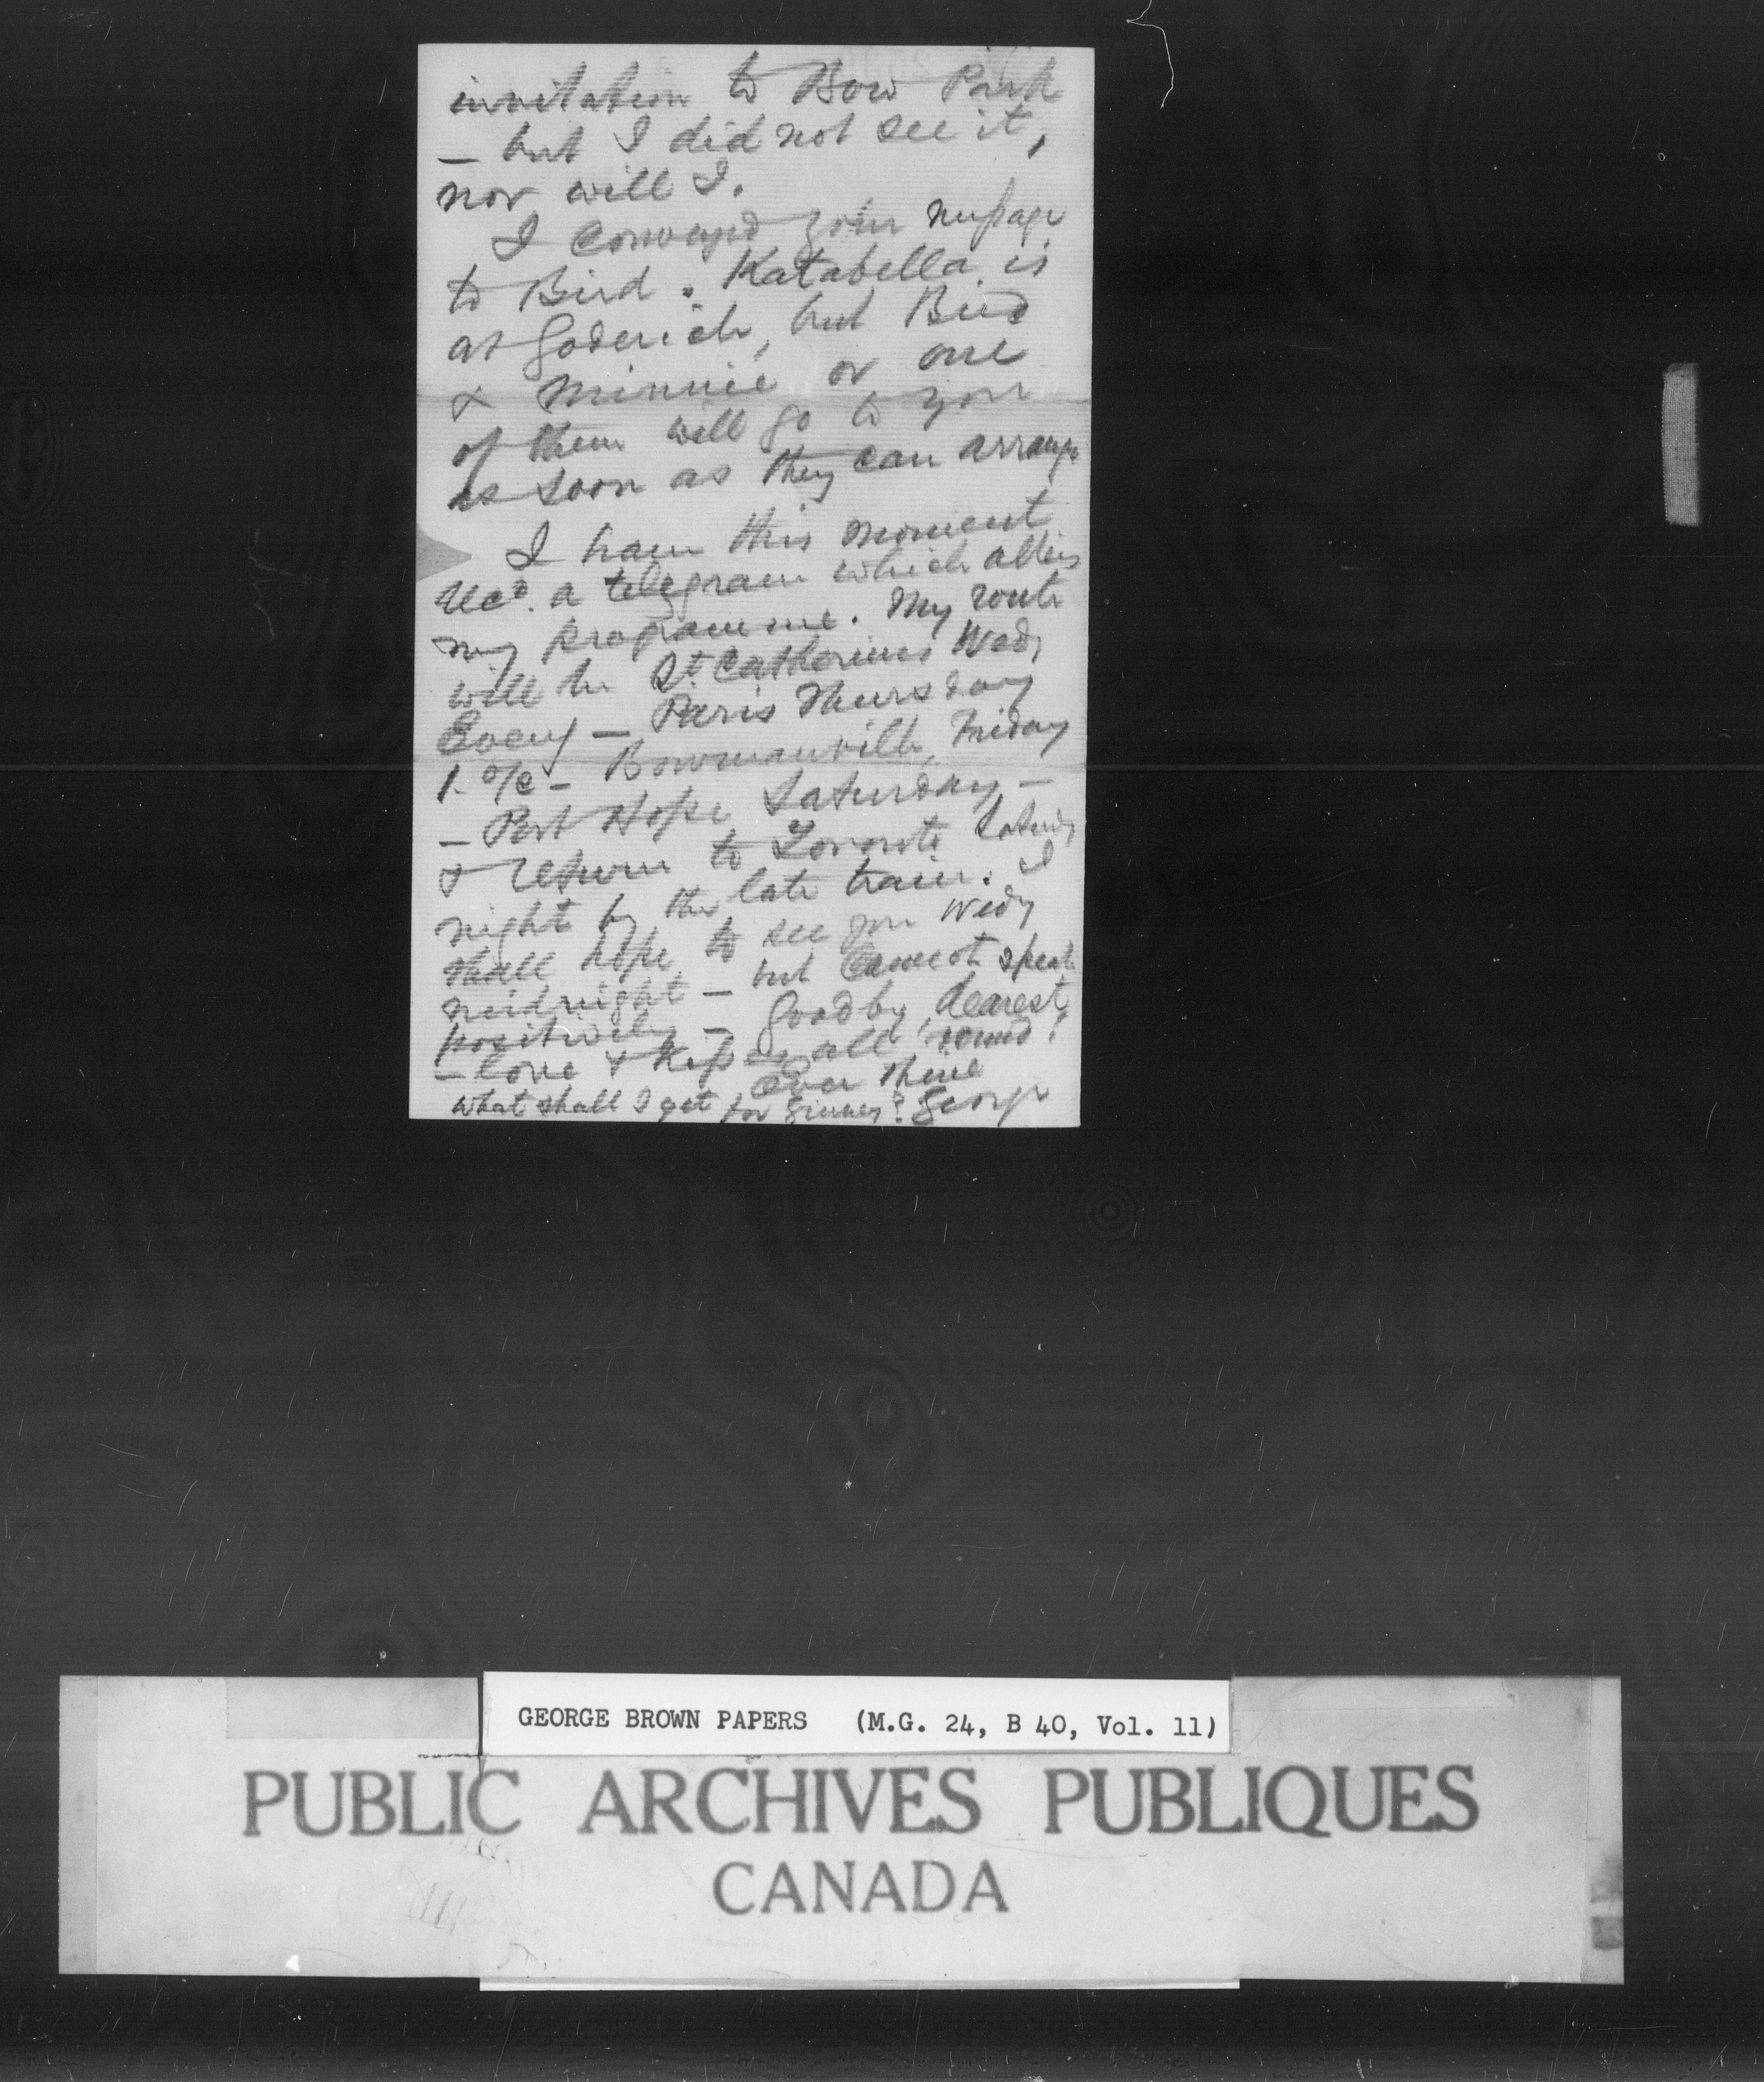 invitation to Bow Park
— but I did not see it,
nor will I.
I conveyed your message
to Bird. Katabella is
at Goderich, but Bird
& Minnie or one
of them will go to you
as soon as they can arrange
I have this moment
recd. a telegram which alters
my programme. My route
will be St Catherines Wedy
Eveng — Paris Thursday
1. o/c — Bowmanville, Friday
— Port Hope Saturday —
& return to Toronto Saturdy
night by the late train. I
shall hope to see you Wedy
midnight — but cannot speak
positively — Good by, dearest,
— love & kisses all round!
Ever thine
What shall I get for ? George
GEORGE BROWN PAPERS (M.G. 24, B 40, Vol. 11)
PUBLIC ARCHIVES PUBLIQUES
CANADA